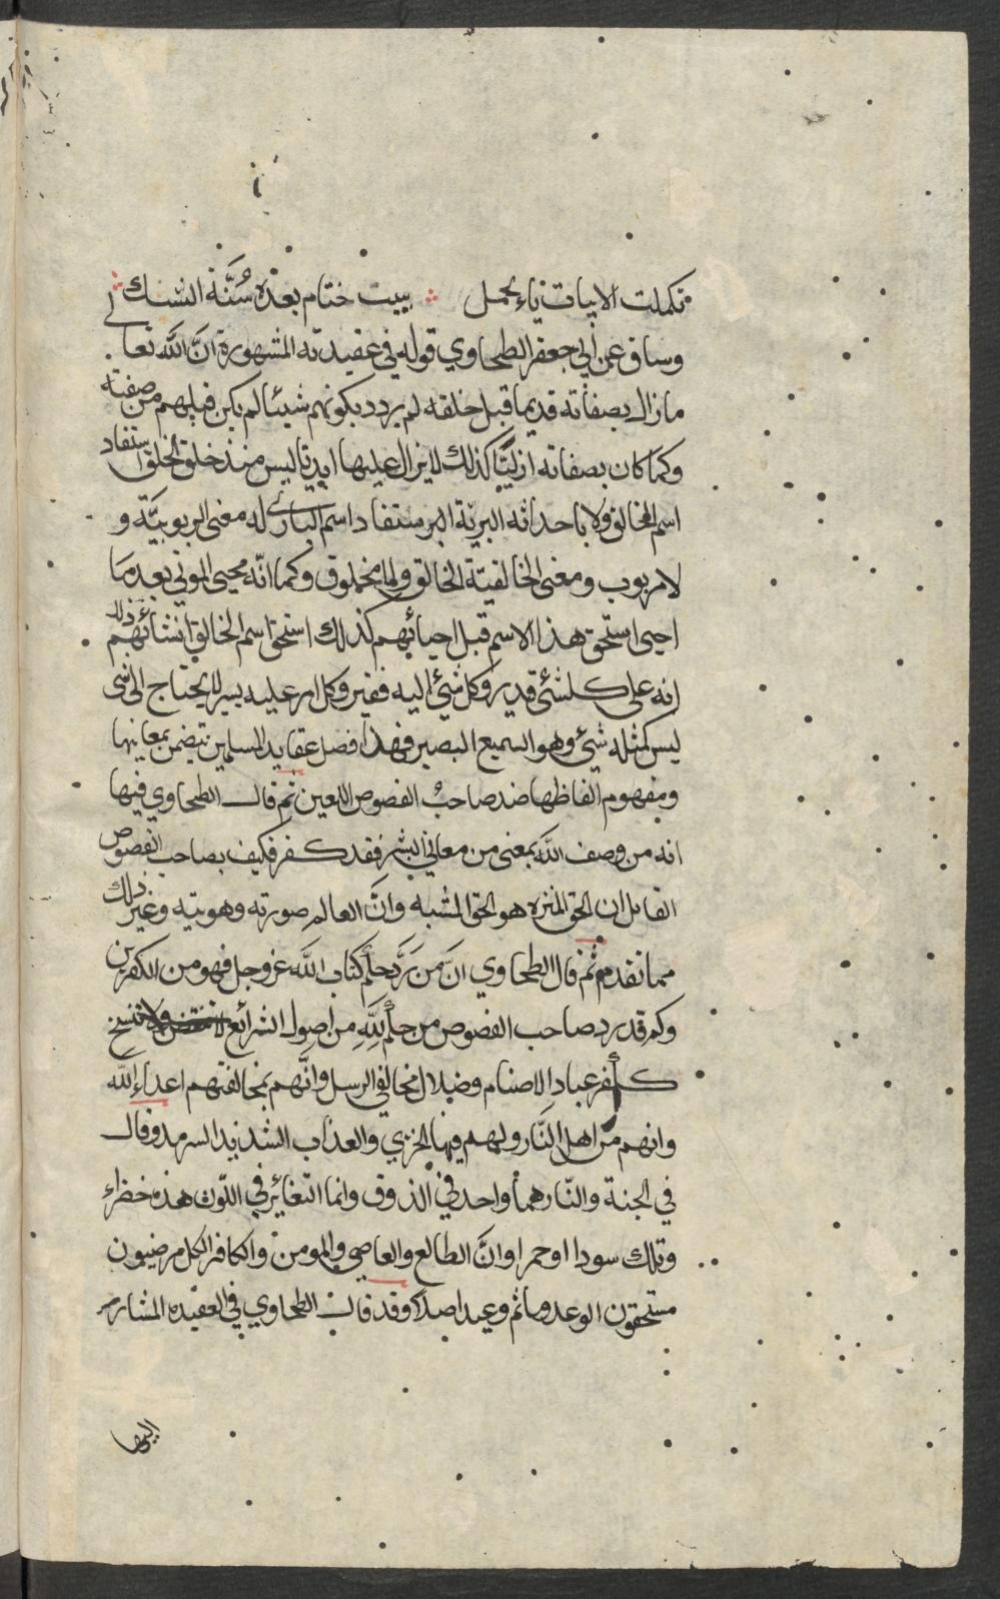 تكملت الابيات ياء بجمل ؞ ببيت ختام بعده سُنَّة النسك ؞
وساق عن ابي جعفر الطحاوي قوله في عقيدته المشهورة انَّ الله تعالى
مازال بصفاته قديما قبل خلقه لم يزدد بكونهم شيئا لم يكن قبلهم من صفته
وكما كان بصفاته ازليًّا كذلك لا يزال عليها ابديّا ليس منذ خلق الخلق استفاد
اسم الخالق ولا باحداثه البريّة استفاد اسم الباري له معنى الربوبيّة و
لا مربوب ومعنى الخالقيّة الخالق ولا مخلوق وكما انّه محيي الموتى بعد ما
احيى استحق هذا الاسم قبل احيائهم كذلك استحق اسم الخالق انشائهم ذلك
انه على كلشئ قدير وكل شئ اليه فقير وكل امر عليه يسير لا يحتاج الى شى
ليس كمثله شئ وهو السميع البصير فهذا افضل عقايد المسلمين تتضمن بمعانيها
وبمفهوم الفاظها ضد صاحب الفصوص اللعين ثم قال الطحاوي فيها
انه من وصف الله بمعنى من معاني البشر فقد كفر فكيف بصاحب الفصوص
القائل ان الحق المنزه هو الحق المشبه وانَّ العالم صورته وهويته وغير ذلك
مما تقدم ثم قال الطحاوي انَّ مَن رَدَّ حكم كتاب الله عز وجل فهو من الكفرين
وكم قد رد صاحب الفصوص من حكم للّهِ من اصول الشرائع ولا تنسخ
كفر عباد الاصنام وضلال مخالفي الرسل وانَّهم بمخالفتهم اعداء الله
وانهم من اهل النَّار ولهم فيها الخزي والعذاب الشديد السرمد وقال
في الجنة والنّار هما واحد في الذوق وانما التغائر في اللّون هذه خضراء
وتلك سودا او حمرا وانَّ الطالع والعاصي والمومن والكافر الكل مرضيون
مستحقون الوعد وما ثم وعيد اصلا وقد قال الطحاوي في العقيده المشار
اليها